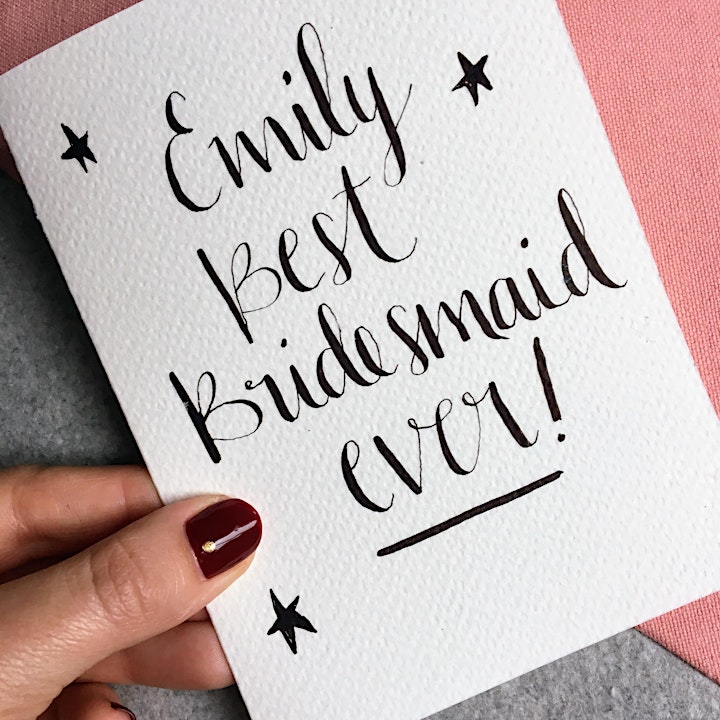 Emily
Best
Bridesmaid
ever!